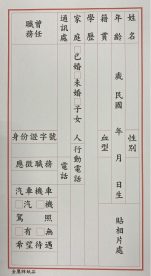 姓名 性別
年齡 歲 民國 年 月 日生
籍貫 血型 貼相片處
學歷
家庭 □已婚 □未婚 □子女 人 行動電話
通訊處 電話
曾任職務
身份證字號
應徵職務
汽車 機車
汽車 □ □機車
駕 □ □照
□有 □無
希望待遇
金麗牌紙品